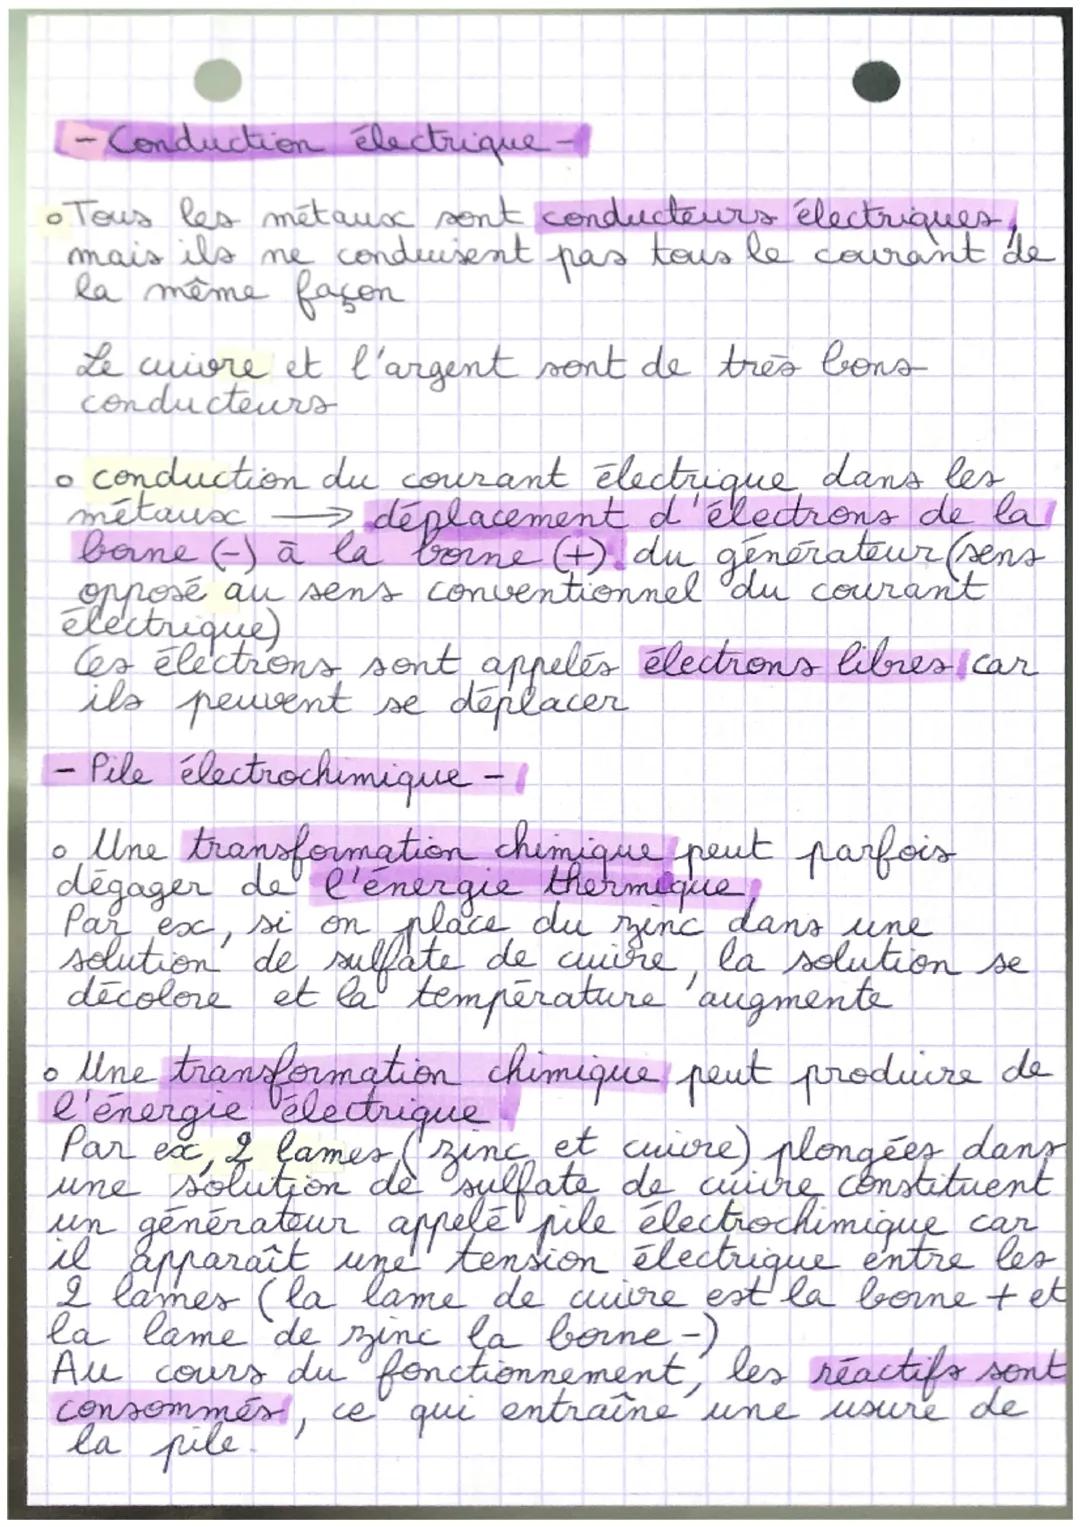 - Conduction électrique -
o Tous les métaux sont conducteurs électriques,
mais ils ne conduisent pas tous le courant de
la même façon
Le cuivre et l'argent sont de très bons
conducteurs
o conduction du courant électrique dans les
métaux → déplacement d'électrons de la
borne (-) à la borne (+) du générateur (sens
opposé au sens conventionnel du courant
électrique)
Ces électrons sont appelés électrons libres car
ils peuvent se déplacer
- Pile électrochimique -
o Une transformation chimique peut parfois
dégager de l'énergie thermique,
Par ex, si on place du zinc dans une
solution de sulfate de cuivre, la solution se
décolore et la température augmente
o Une transformation chimique peut produire de
l'énergie électrique
Par ex, 2 lames (zinc et cuivre) plongées dans
une solution de sulfate de cuivre constituent
un générateur appelé pile électrochimique car
il apparaît une tension électrique entre les
2 lames (la lame de cuivre est la borne + et
la lame de zinc la borne -)
Au cours du fonctionnement, les réactifs sont
consommés, ce qui entraîne une usure de
la pile.